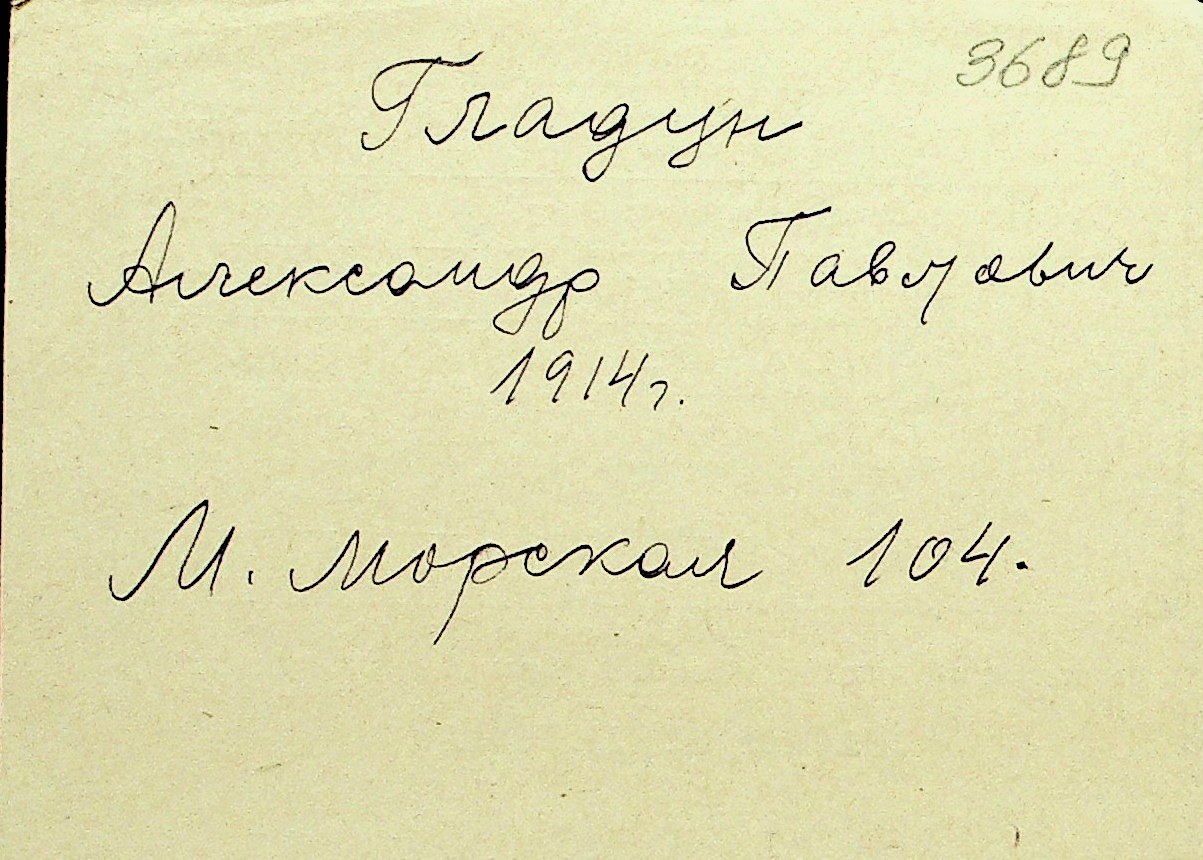 3689
Гладун
Александр Павлович
1914г.
М. Морская 104.